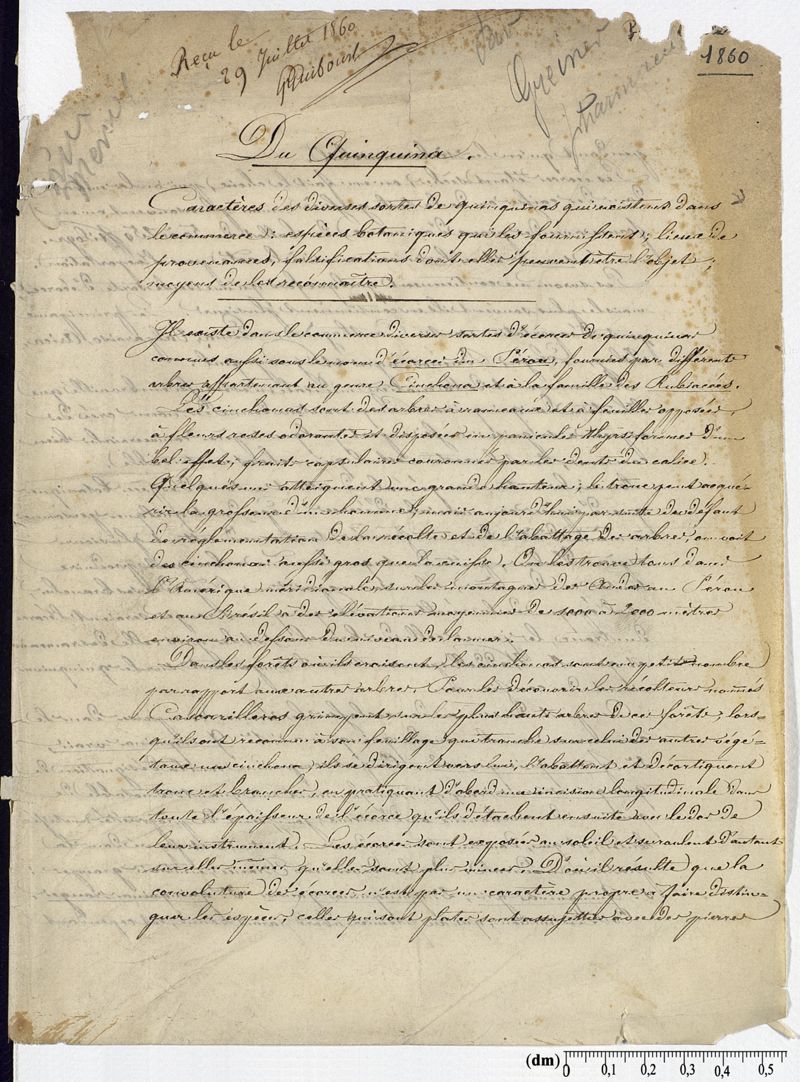 Reçu le
29 Juillet 1860
Guibourt
Par
Greiner
Pharmacien
1860
Du Quinquina.
Caractères des diverses sortes de quinquinas qui existent dans
le commerce : espèces botaniques qui les fournissent ; lieux de
provenances, falsifications dont elles peuvent être l'objet ;
moyens de les reconnaître.
Il existe dans le commerce diverses sortes d'écorces de quinquinas
connues aussi sous le nom d'écorces du Pérou, fournies par différents
arbres appartenant au genre Cinchona et à la famille des Rubiacées.
Les cinchonas sont des arbres à rameaux et à feuilles opposées,
à fleurs roses odorantes et disposées en panicules thyrsiformes d'un
bel effet ; fruits capsulaires couronnés par les dents du calice.
Quelques uns atteignent une grande hauteur ; le tronc peut acqué-
rir la grosseur d'un homme ; mais aujourd'hui par suite du défaut
de réglementation de la récolte et de l'abattage des arbres, on voit
des cinchonas aussi gros que la cuisse. On les trouve tous dans
l'Amérique méridionale, sur les montagnes des Andes au Pérou
et au Brésil à des élévations moyennes de 1000 à 2000 mètres
environ au dessus du niveau de la mer.
Dans les forêts où ils croissent, les cinchonas sont en petit nombre
par rapport aux autres arbres. Pour les découvrir les récolteurs nommés
Cascarilleros grimpent sur les plus hauts arbres de ces forêts ; lors-
qu'ils ont reconnu à son feuillage qui tranche sur celui des autres végé-
taux un cinchona, ils se dirigent vers lui, l'abattent et décortiquent
tronc et branches, en pratiquant d'abord une incision longitudinale dans
toute l'épaisseur de l'écorce qu'ils détachent ensuite avec le dos de
leur instrument. Les écorces sont exposées au soleil et s'enroulent d'autant
sur elles mêmes qu'elles sont plus minces. D'où il résulte que la
convoluture des écorces n'est pas un caractère propre à faire distin-
guer les espèces, celles qui sont plates sont assujetties avec des pierres
(dm) 0 0,1 0,2 0,3 0,4 0,5